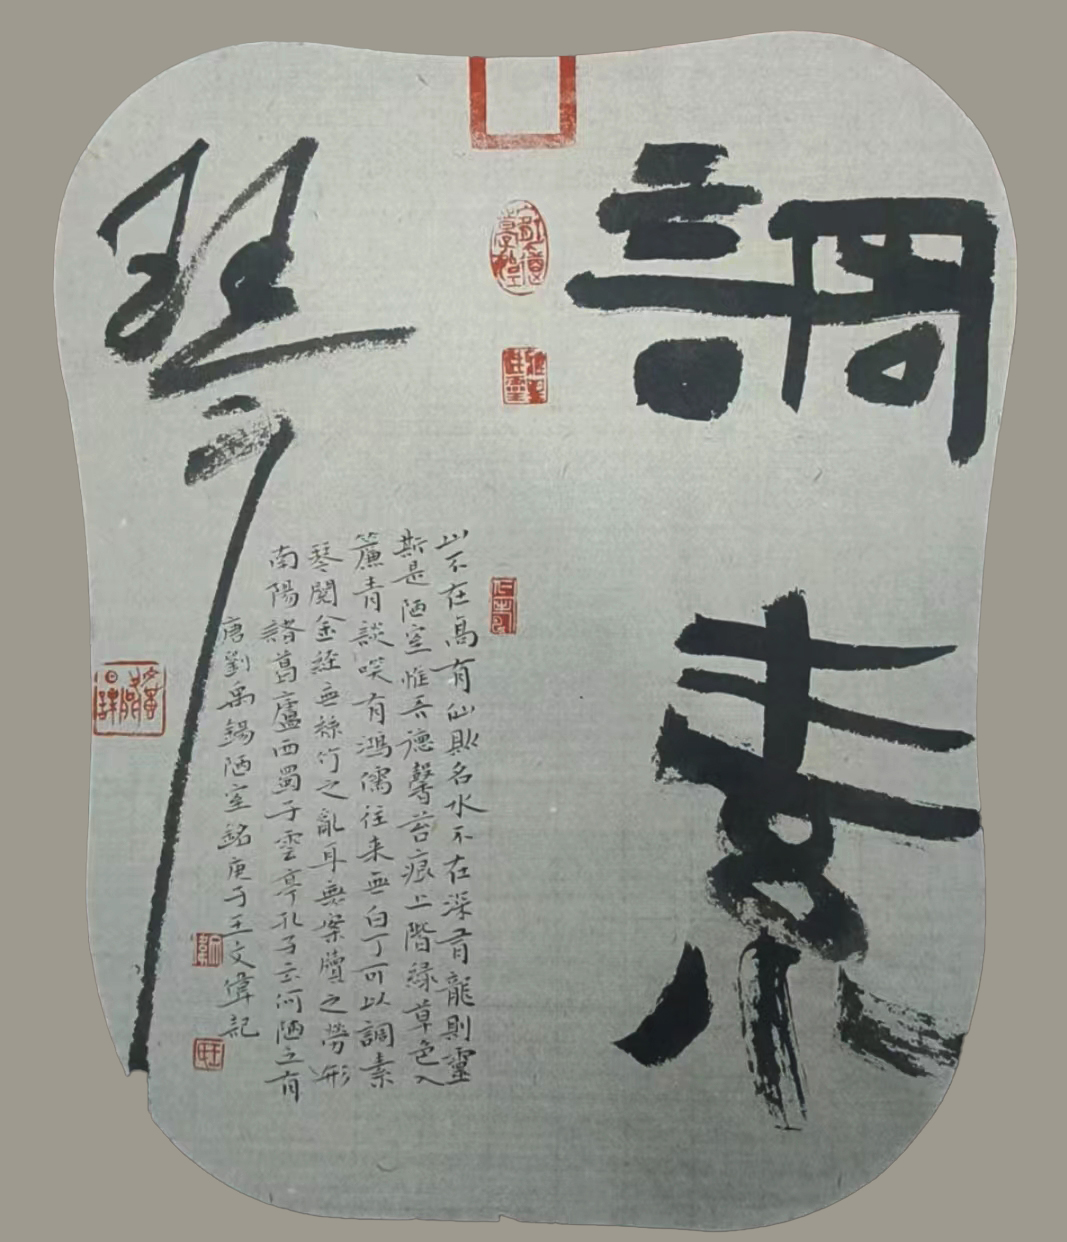 調素
琴
山不在高有仙則名水不在深有龍則靈
斯是陋室惟吾德馨苔痕上階綠草色入
簾青談咲有鴻儒往来無白丁可以調素
琴閱金經無絲竹之亂耳無案牘之勞形
南陽諸葛廬西蜀子雲亭孔子云何陋之有
唐劉禹錫陋室銘庚子王文偉記